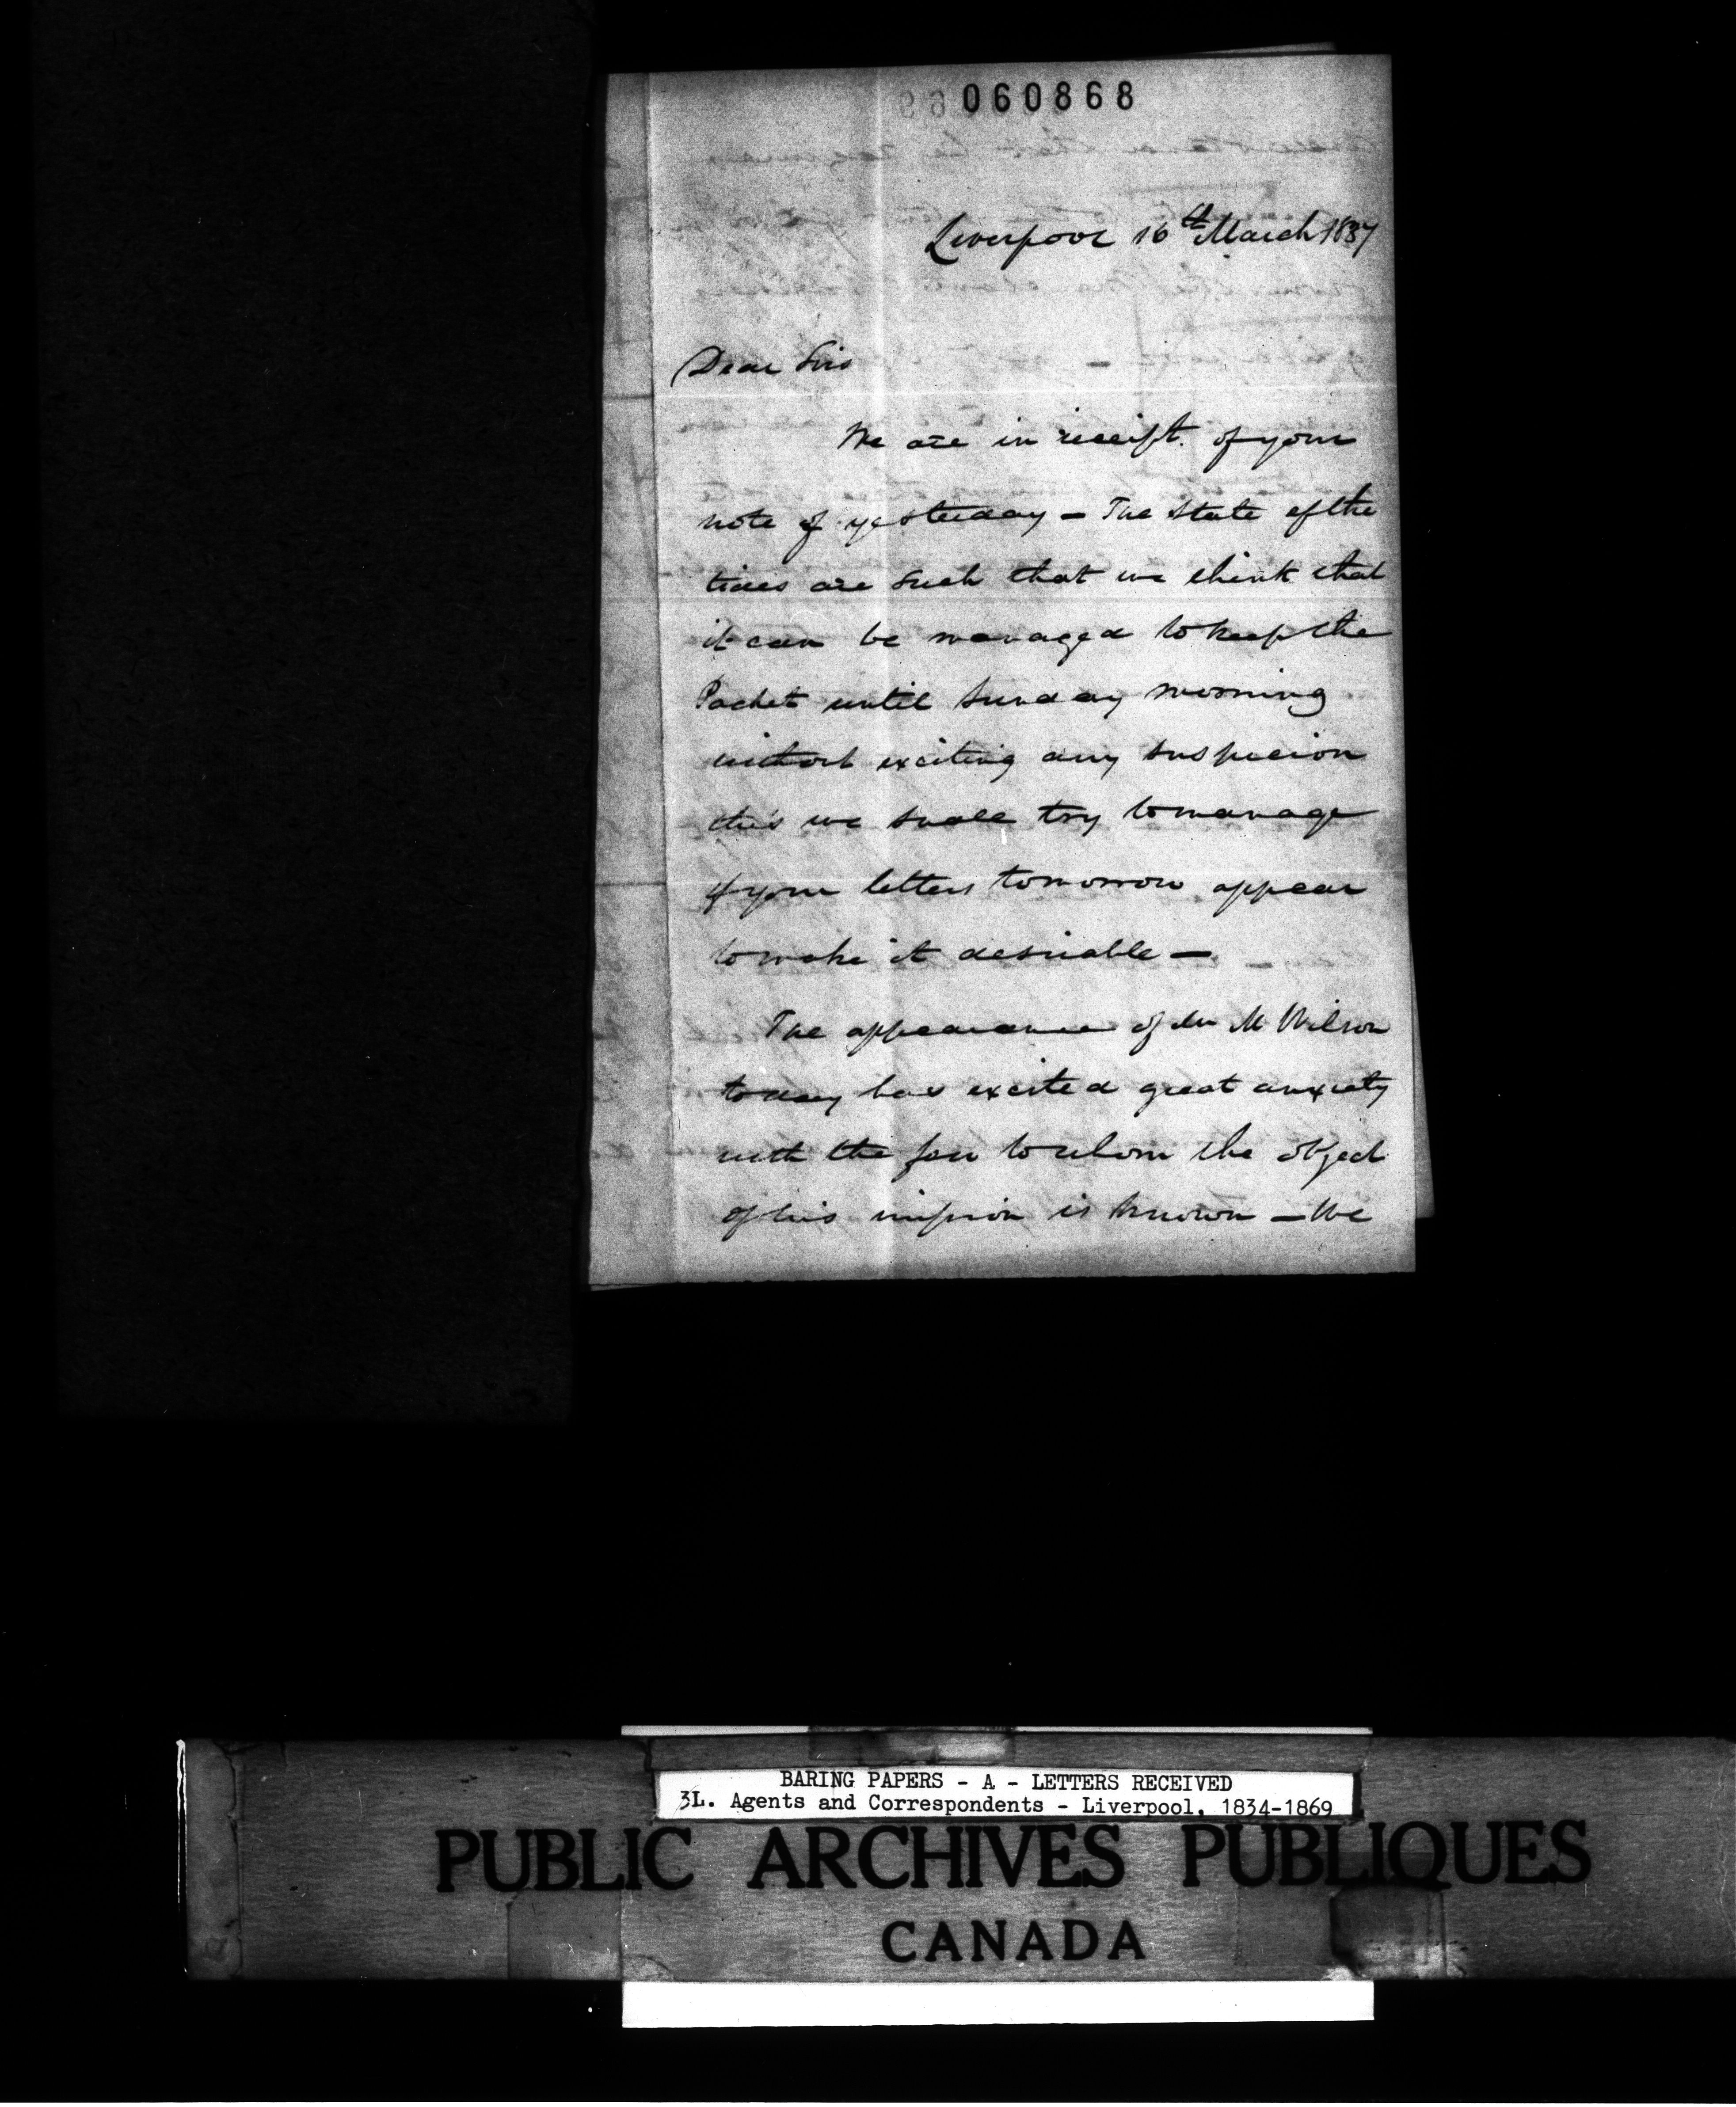 060868
Liverpool 16th March 1837
Dear Sirs
We are in receipt of your
note of yesterday — The state of the
tides are such that we think that
it can be managed to keep the
Packet until Sunday morning
without exciting any suspicion
this we shall try to manage
if your letters tomorrow appear
to make it desirable —
The appearance of Mr M Wilson
today has excited great anxiety
with the few to whom the object
of his mission is known — We
BARING PAPERS - A - LETTERS RECEIVED
3L. Agents and Correspondents - Liverpool, 1834-1869
PUBLIC ARCHIVES PUBLIQUES
CANADA